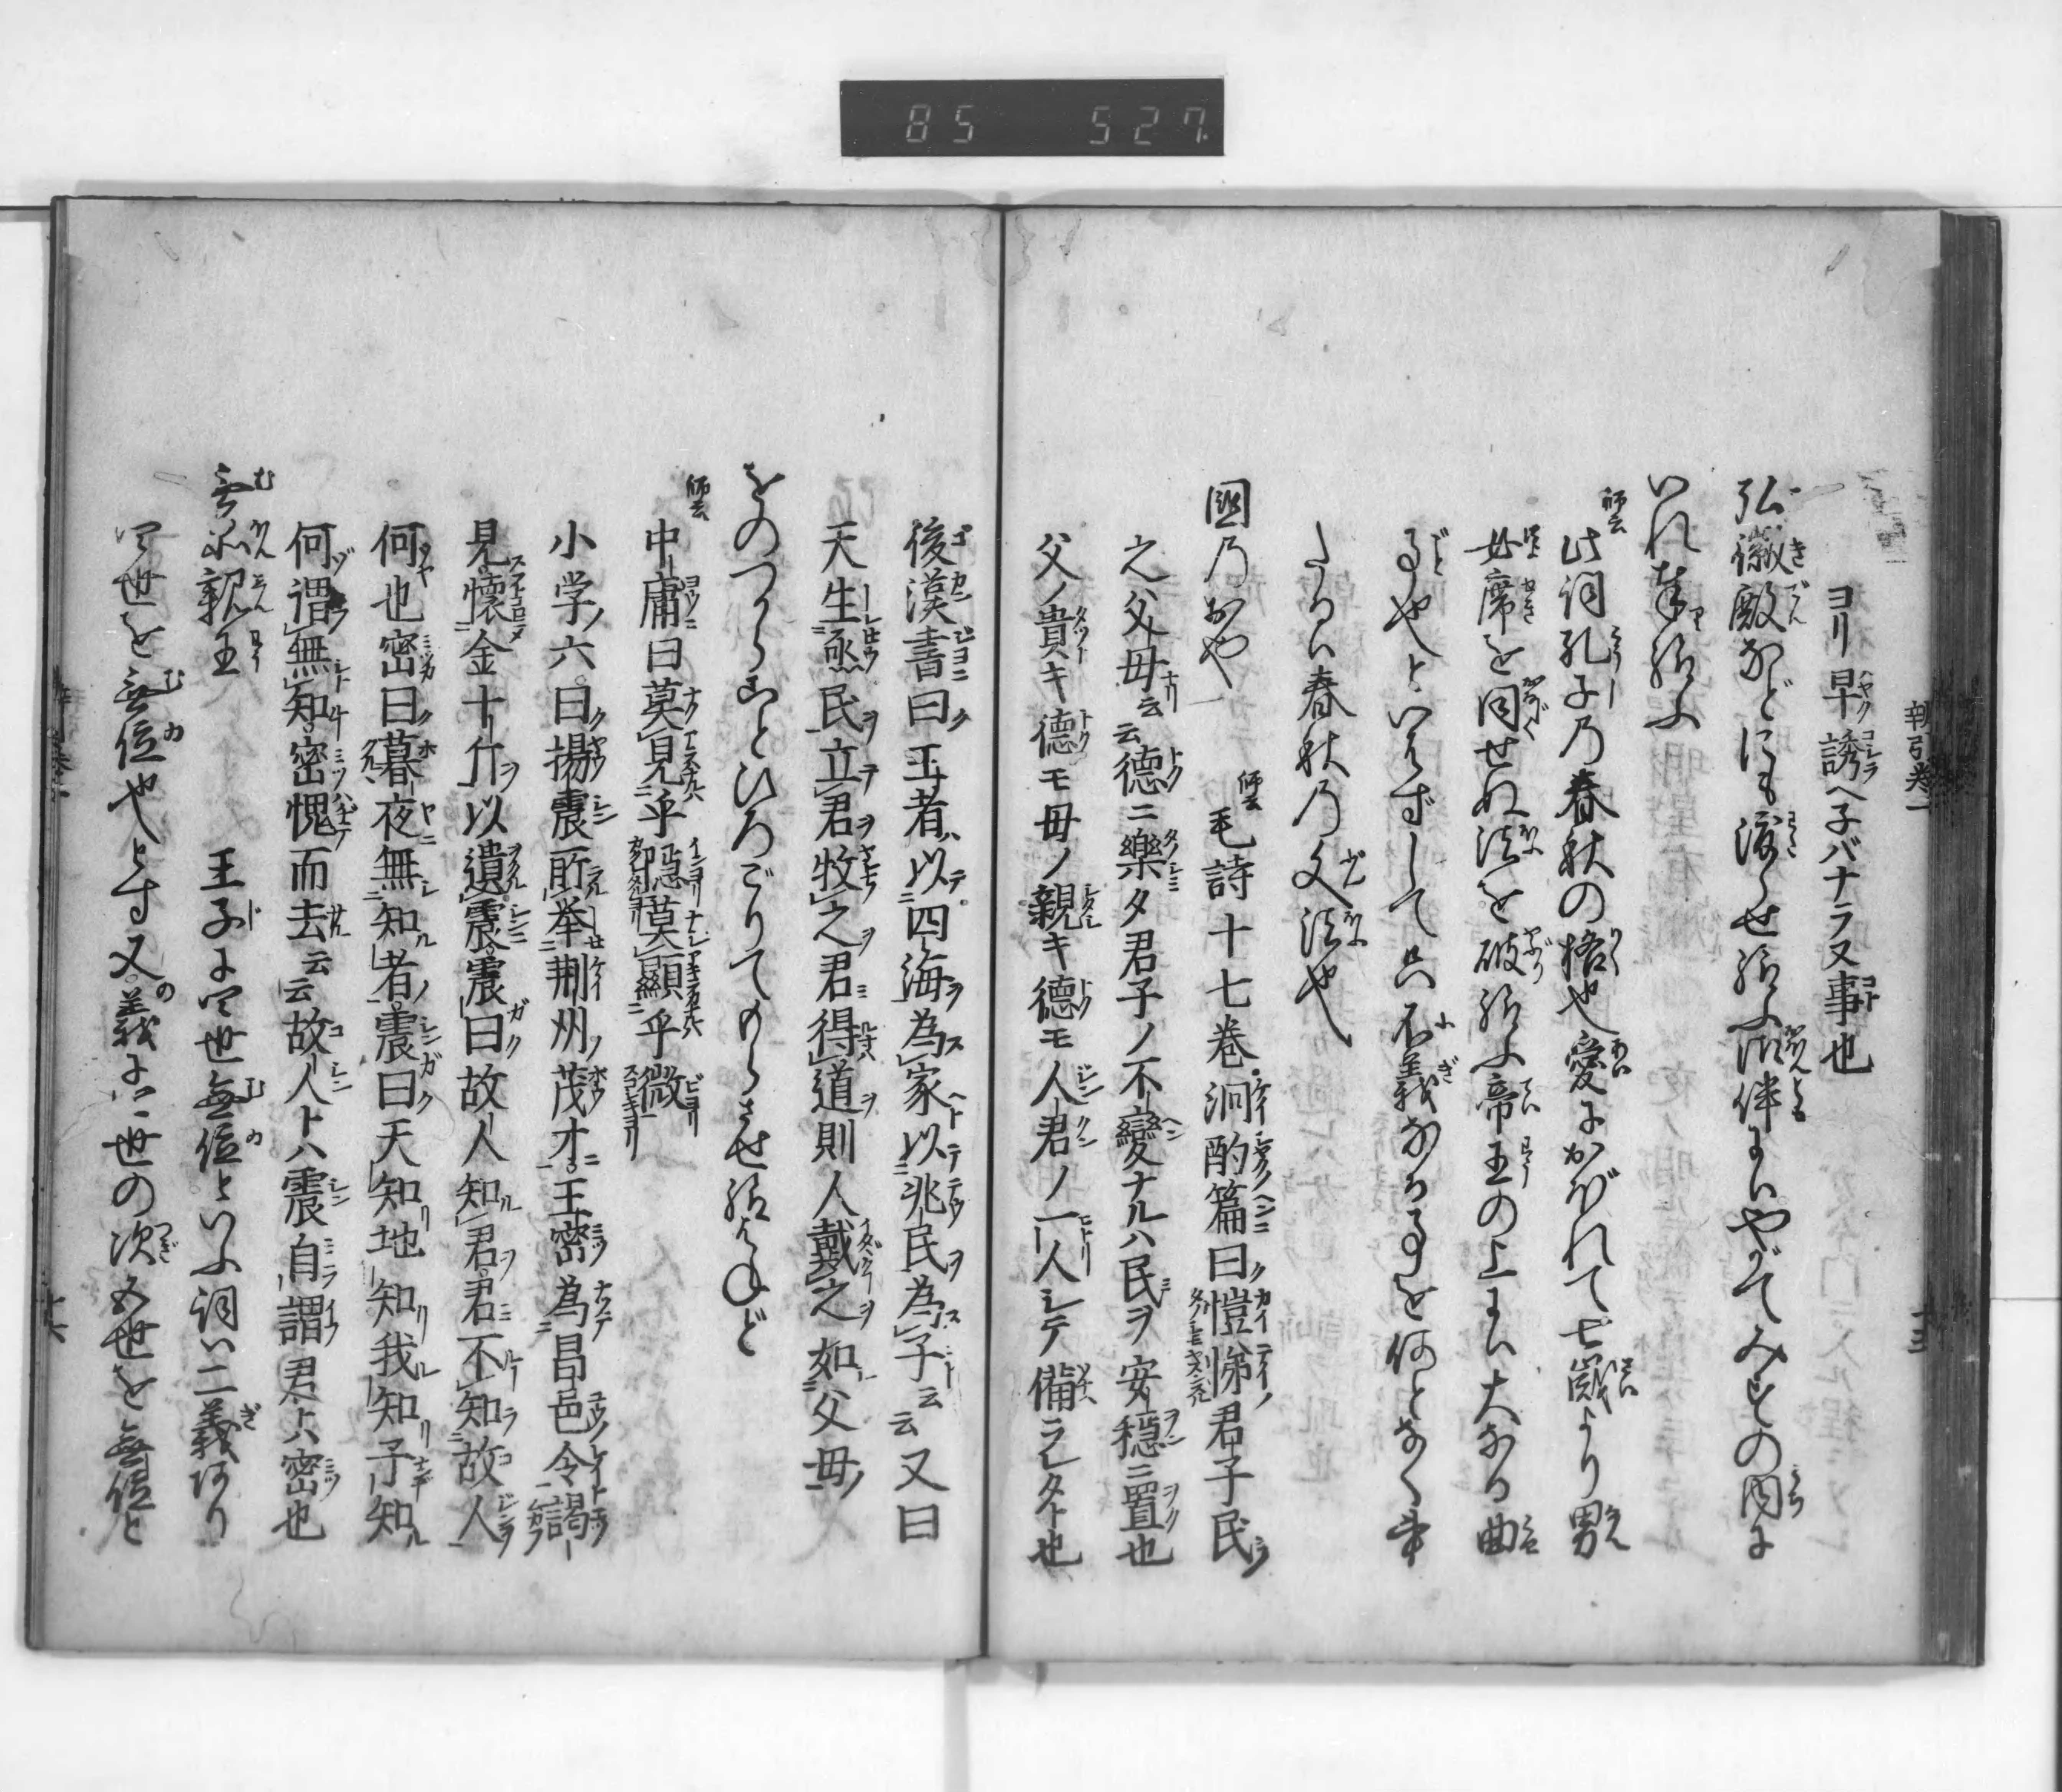 85 527
ヨリ早誘ヘ子バナラヌ事也
弘徽殿などにも渡らせ給ふ御伴にハやがてみすの内に
いれ奉給ふ
師云 此詞孔子乃春秋の格也愛におぼれて七歳より男
女席を同せぬ法を破給ふ帝王の上にハ大なる曲
事也といはずして只不義なる事を何となく書
たるハ春秋乃文法也
國乃おや 師云 毛詩十七巻泂酌篇曰愷悌君子民
之父母云云徳ニ樂タ君子ノ不變ナルハ民ヲ安穏ニ置也
父ノ貴キ徳モ母ノ親キ徳モ人君ノ一人シテ備ラレタト也
後漢書曰王者以四海為家以兆民為子云云又曰
天生烝民立君牧之君得道則人戴之如父母
をのづからことひろごりてもらさせ給はねど
師云 中庸曰莫見乎隠莫顯乎微
小学六曰揚震所挙荆州茂才王密為昌邑令謁
見懐金十斤以遺震震曰故人知君君不知故人
何也密曰暮夜無知者震曰天知地知我知子知
何謂無知密愧而去云云故人トハ震自謂君トハ密也
無品親王 王子に四世無位といふ詞ハ二義あり
四世を無位也とす又義にハ一世の次五世を無位と